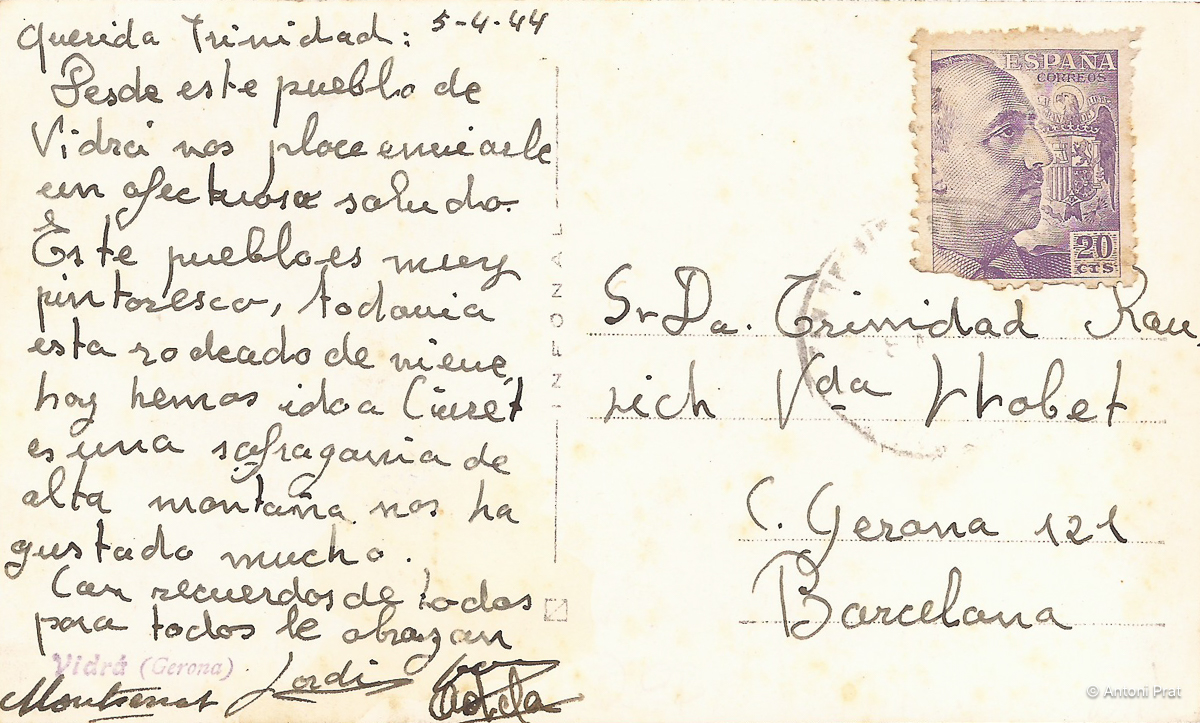 Querida Trinidad: 5-4-44
Desde este pueblo de
Vidrá nos place enviarle
un afectuoso saludo.
Este pueblo es muy
pintoresco, todavia
esta rodeado de nieve,
hoy hemos ido a Ciuret
es una sofragania de
alta montaña nos ha
gustado mucho.
Con recuerdos de todos
para todos le abrazan
Vidrá (Gerona)
Montserrat Jordi
INFONAL
ESPAÑA
CORREOS
20
CTS
Sr Da. Trinidad Rau,
rich Vda Llobet
C. Gerona 121
Barcelona
© Antoni Prat